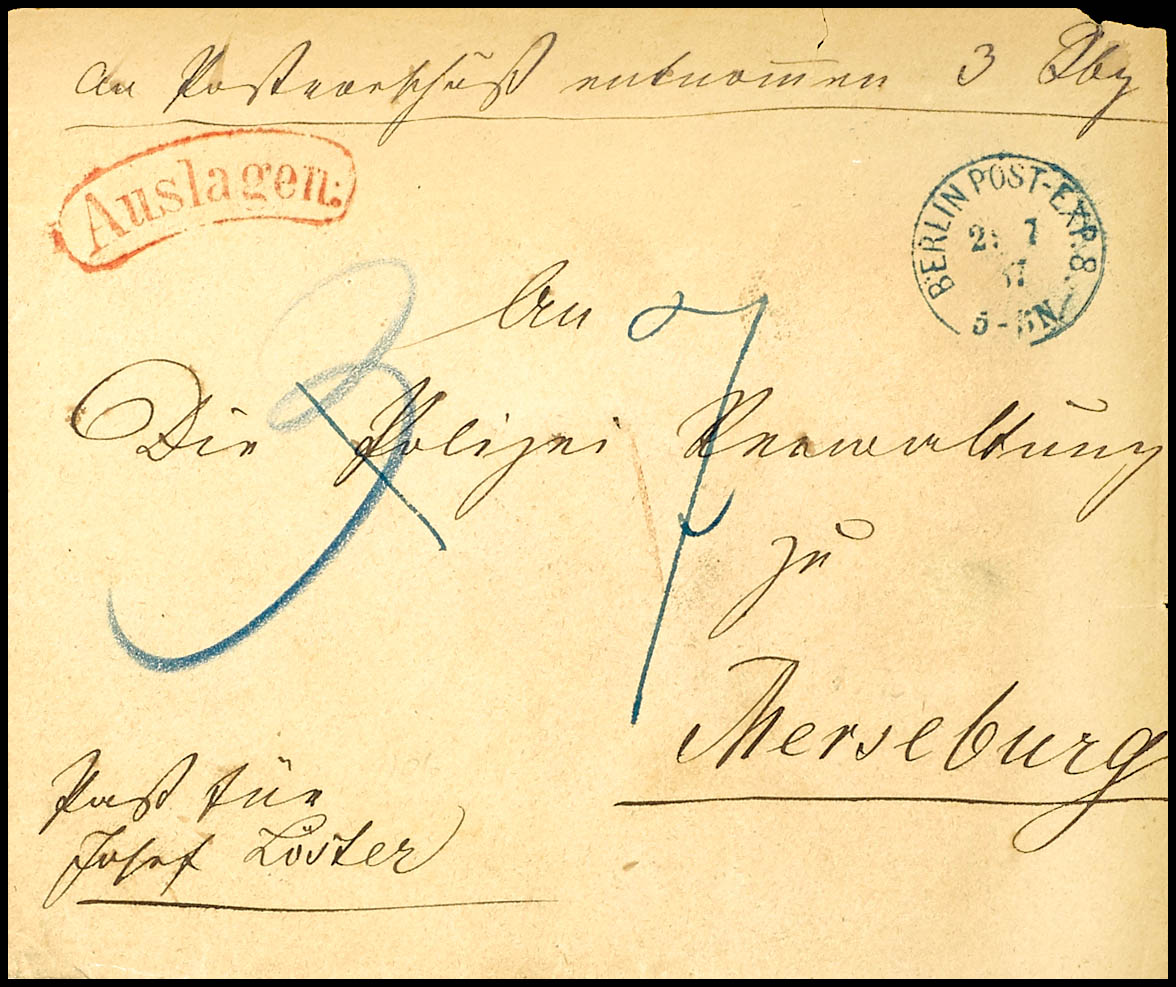 An Postvorschuß entnommen 3 Sbg
Auslagen:
BERLIN POST-EXP. 8.
7
5-5N
3
An
7
Die Polizei Verwaltung
zu
Merseburg
Paß für
Josef Löster